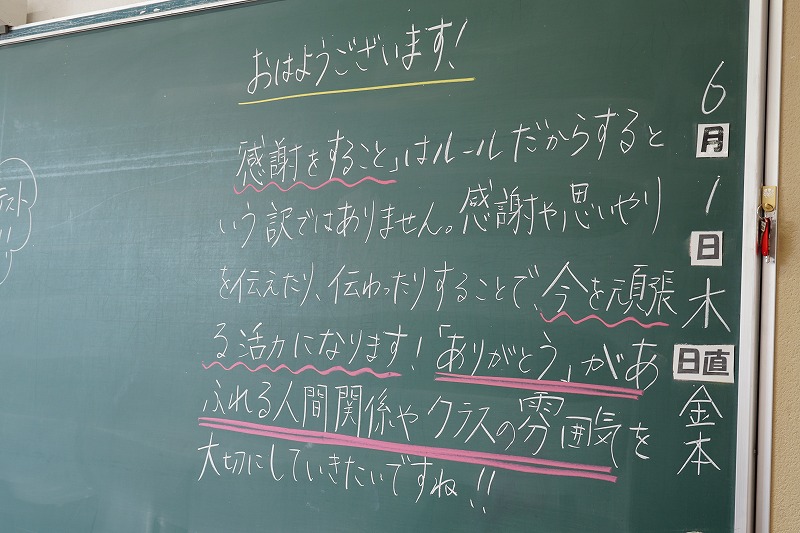 おはようございます!
「感謝をすること」はルールだからすると
いう訳ではありません。感謝や思いやり
を伝えたり、伝わったりすることで、今を頑張
る活力になります!「ありがとう」があ
ふれる人間関係やクラスの雰囲気を
大切にしていきたいですね!!
6
月
1
日
木
日直
金本
テスト
!!